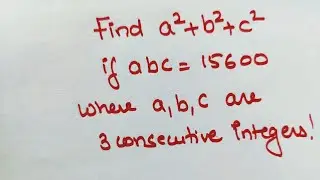 Find a²+b²+c²
if abc = 15600
where a,b,c are
3 consecutive integers!